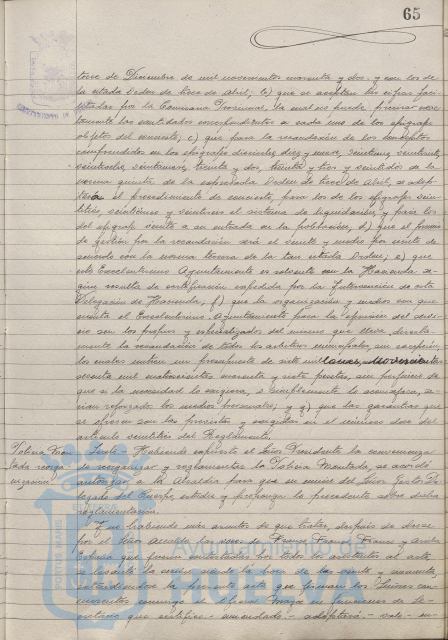 65
trece de Diciembre de mil novecientos cuarenta y dos, y con los de
la citada Orden de trece de Abril; b) que se aceptan las cifras faci-
litadas por la Comisaria Provincial, la cual no puede precisar exac-
tamente las cantidades correspondientes a cada uno de los epígrafes
objetos del concierto; c) que para la recaudación de los conceptos
comprendidos en los epígrafes dieciseis, diez y nueve, veintiuno, veintiseis,
treinta y dos, treinta y tres y
norma quinta de la expresada Orden de trece de Abril, se adop-
taría el procedimiento de concierto, para los de los epígrafes
el sistema de liquidación, y para los
del epígrafe veinte a su entrada en la población; d) que el premio
de gestión por la recaudación será el veinte y medio por ciento de
acuerdo con la norma tercera de la tan citada Orden; e) que
este Excelentísimo Ayuntamiento es solvente con la Hacienda se-
gún resulta de certificación expedida por la Intervención de esta
Delegación de Hacienda; f) que la organización y medios con que
cuenta el Excelentísimo Ayuntamiento para la efección del servi-
cio son los propios y especializados del mismo que lleva directa-
mente la recaudación de todos los arbitrios municipales, sin excepción,
los cuales tienen un presupuesto de siete millones, novecientas
sesenta mil cuatrocientas cuarenta y siete pesetas, sin perjuicio de
que si la necesidad lo exigiera, o simplemente lo aconsejara, se-
rían reforzados los medios personales; y g) que las garantías que
se ofrecen son las previstas y exigidas en el número doce del
artículo veintitres del Reglamento.
Policia Mon- Sexto – Habiendo expuesto el Señor Presidente la conveniencia
tada reorga- de reorganizar y reglamentar la Policia Montada, se acordó
nización autorizar a la Alcaldía para que en unión del Señor Gestor De-
legado del Cuerpo, estudie y proponga la procedente sobre dicha
reglamentación.
Y no habiendo más asuntos de que tratar, después de darse
por el Señor Alcalde las voces de Franco, Franco, Franco y Arriba
España que fueron contestadas por todos los asistentes al acto,
se levantó la sesión siendo la hora de las veinte y cuarenta,
extendiéndose la presente acta que firman los Señores con-
currentes conmigo el Oficial Mayor en funciones de Se-
cretario que certifico – enmendado – adoptará – vale – en-
Ayuntamiento de
HUELVA
PORTUS MARIS